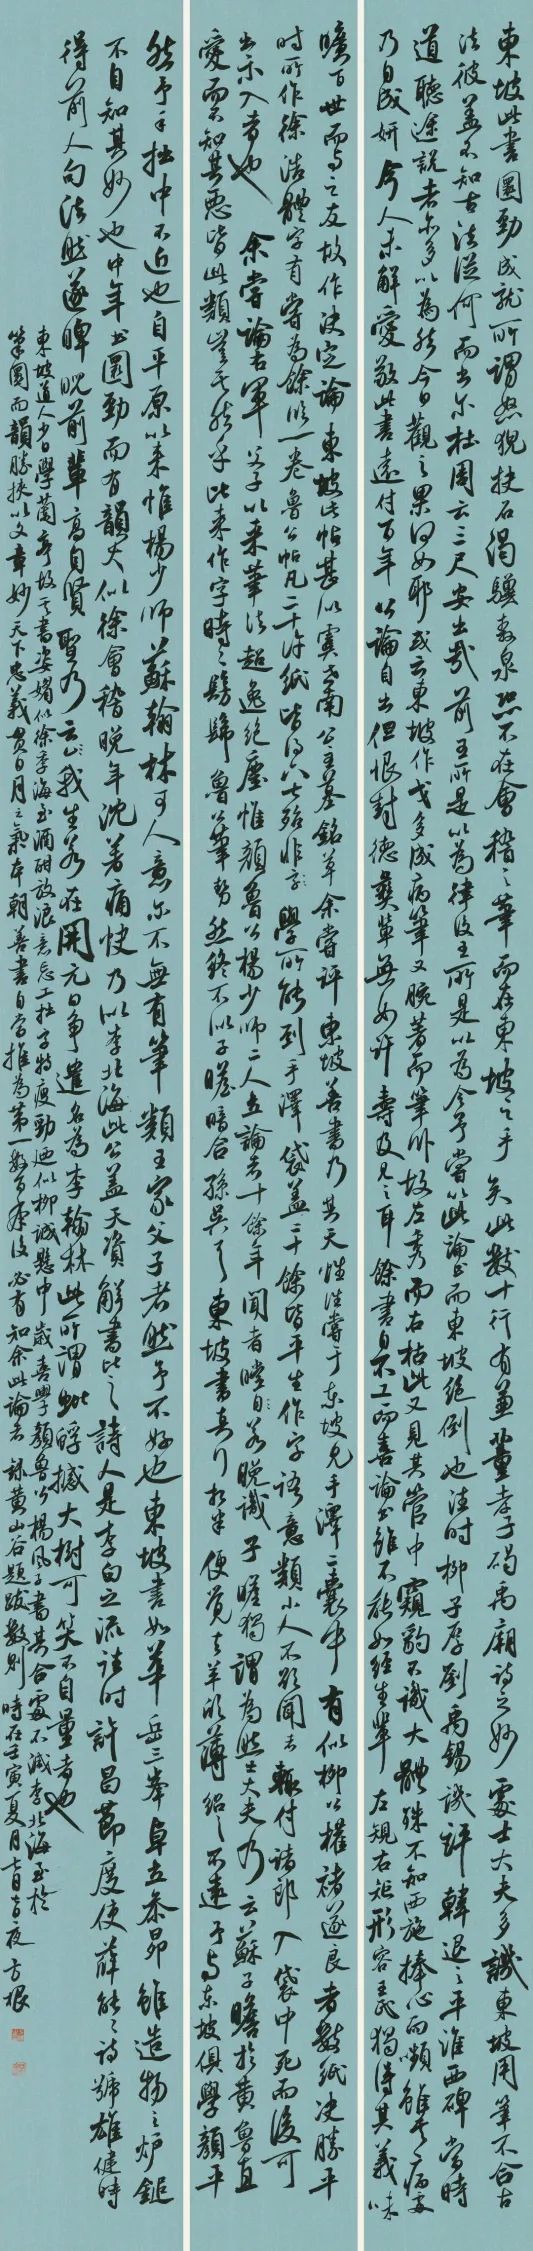 東坡此書圓勁成就所謂怒猊抉石渴驥奔泉恐不在會稽之筆而在東坡之手矣此數十行有兼董孝子碣禹廟詩之妙處士大夫多譏東坡用筆不合古
法彼蓋不知古法從何而出尔杜周云三尺安出哉前王所是以為律後王所是以為令予嘗以此論書而東坡絕倒也往時柳子厚劉禹錫譏評韓退之平淮西碑當時
道聽途說者亦多以為然今日觀之果何如耶或云東坡作戈多成病筆又腕著而筆卧故左秀而右枯此又見其管中窺豹不識大體殊不知西施捧心而顰雖其病處
乃自成妍今人未解愛敬此書遠付百年公論自出但恨封德彝輩無如許壽及見之耳餘書自不工而喜論書雖不能如經生輩左規右矩形容王氏獨得其義味
曠百世而與之友故作決定論東坡此帖甚似虞世南公主墓銘草余嘗評東坡善書乃其天性往嘗于東坡見手澤二囊中有似柳公權褚遂良者數紙決勝平
時所作徐浩體字有嘗為餘臨一卷魯公帖凡二十許紙皆得六七殆非學所能到手澤袋蓋二十餘皆平生作字語意類小人不欲聞者輒付諸郎入袋中死而後可
出示人者也余嘗論右軍父子以來筆法超逸絕塵惟顏魯公楊少師二人立論者十餘年聞者瞠目若晚識子瞻獨謂為然士大夫乃云蘇子瞻於黃魯直
愛而不知其惡皆此類豈其然乎比來作字時時髣髴魯公筆勢然終不似子瞻暗合孫吳耳東坡書真行相半便覺去羊欣薄紹之不遠予與東坡俱學顏平
然予手拙中不近也自平原以來惟楊少師蘇翰林可人意尔不無有筆類王家父子者然予不好也東坡書如華岳三峯卓立參昴雖造物之炉鎚
不自知其妙也中年書圓勁而有韻大似徐會稽晚年沈著痛快乃似李北海此公蓋天資解書比之詩人是李白之流往時許昌節度使薛能能詩號雄健時
得前人句法然遂睥睨前輩高自賢聖乃云我生若在開元日爭遣名為李翰林此所謂蚍蜉撼大樹可笑不自量者也
東坡道人少日學蘭亭故其書姿媚似徐季海至酒酣放浪意忘工拙字特瘦勁迺似柳誠懸中歲喜學顏魯公楊風子書其合處不減李北海至於
筆圓而韻勝挾以文章妙天下忠義貫日月之氣本朝善書自當推為第一數百年後必有知余此論者錄黃山谷題跋數則時在壬寅夏月七月十日夜方根